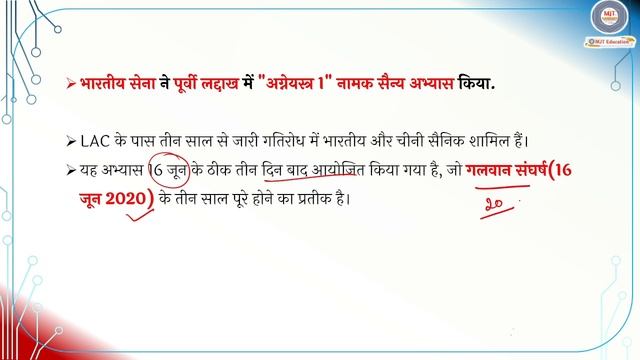 MJT
MJT Education
भारतीय सेना ने पूर्वी लद्दाख में "अग्नेयस्त्र 1" नामक सैन्य अभ्यास किया.
LAC के पास तीन साल से जारी गतिरोध में भारतीय और चीनी सैनिक शामिल हैं।
यह अभ्यास 16 जून के ठीक तीन दिन बाद आयोजित किया गया है, जो गलवान संघर्ष(16
जून 2020) के तीन साल पूरे होने का प्रतीक है।
20